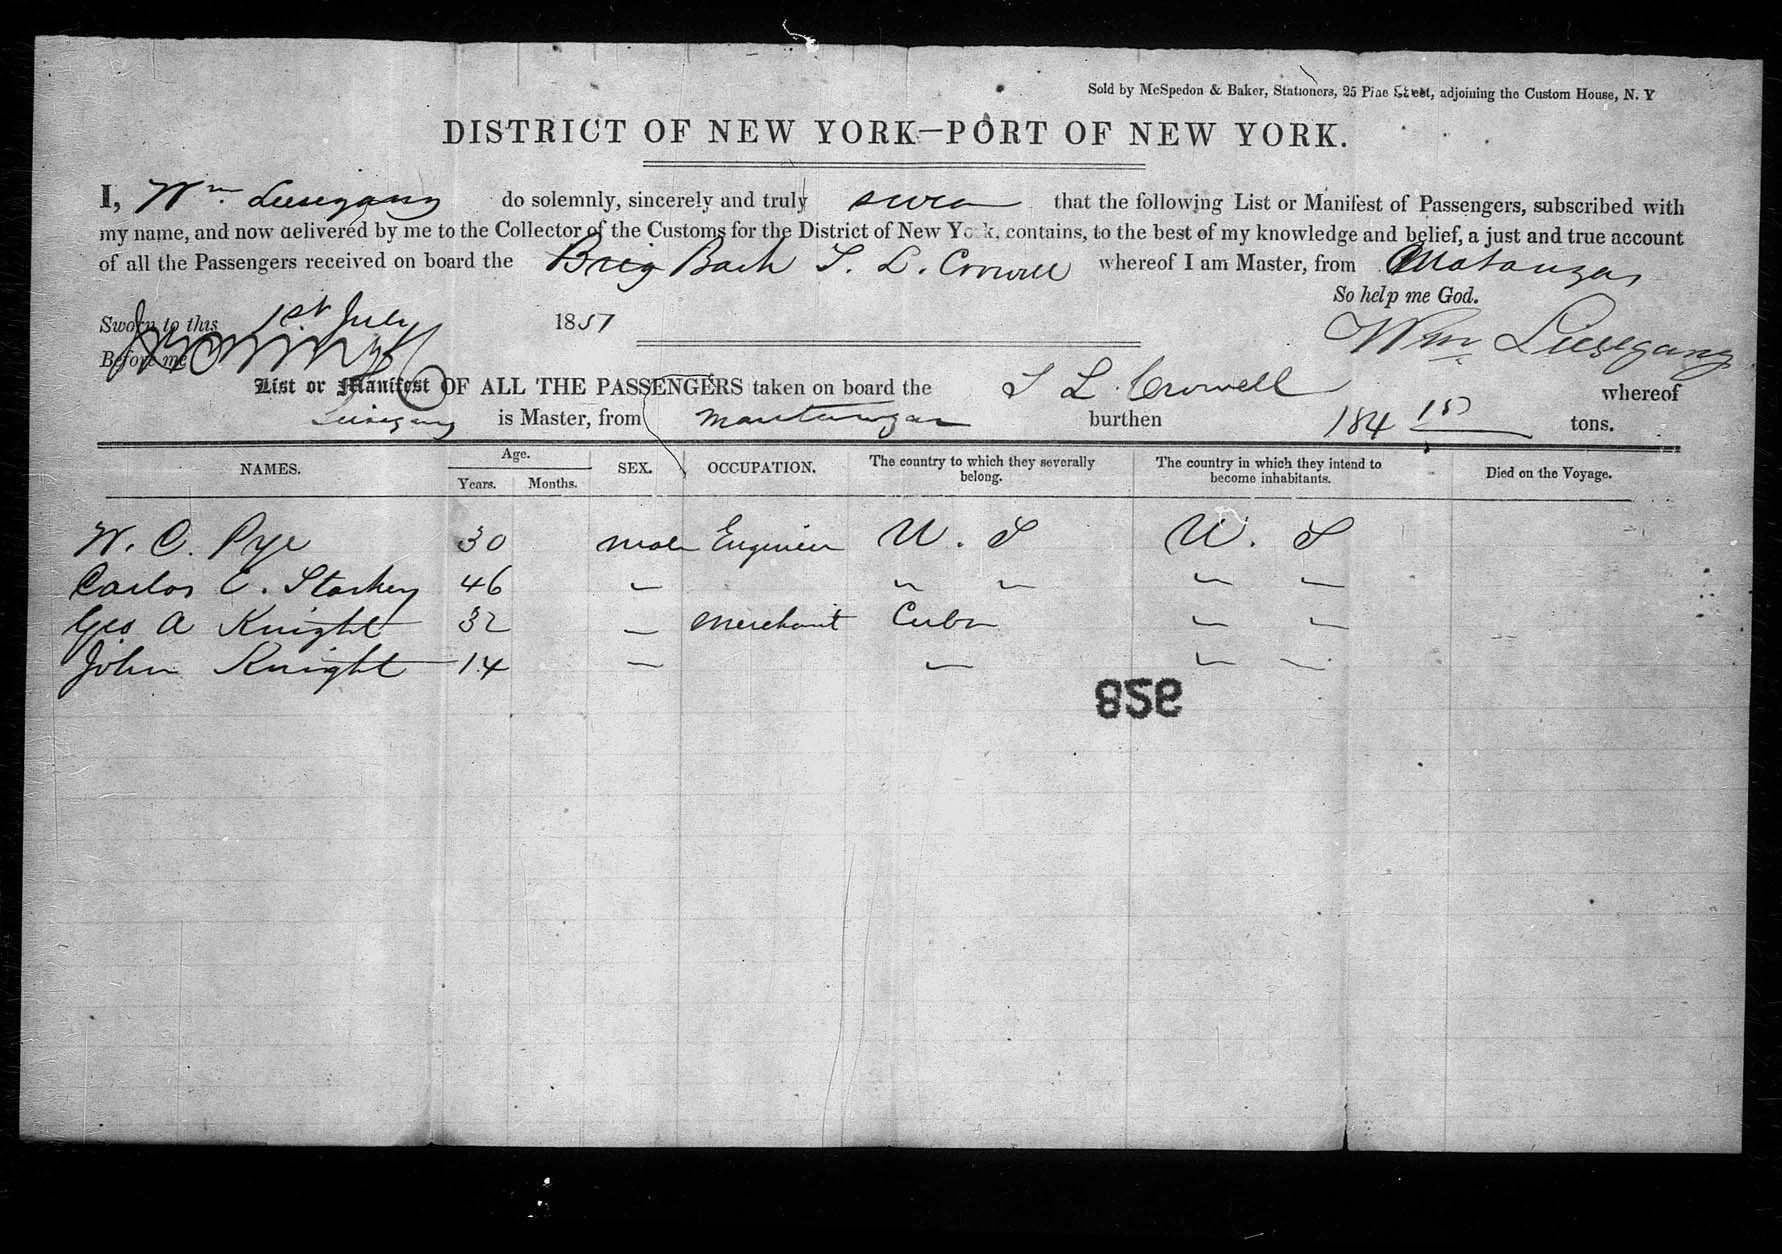 Sold by McSpedon & Baker, Stationers, 25 Pine Street, adjoining the Custom House, N. Y
DISTRICT OF NEW YORK—PORT OF NEW YORK.
I, Wm. Liesegang do solemnly, sincerely and truly swear that the following List or Manifest of Passengers, subscribed with
my name, and now delivered by me to the Collector of the Customs for the District of New York, contains, to the best of my knowledge and belief, a just and true account
of all the Passengers received on board the Brig Bark T. L. Crowell whereof I am Master, from Matanzas
So help me God.
Sworn to this 1st July 1851
Wm. Liesegang
Before me
List or Manifest OF ALL THE PASSENGERS taken on board the T L. Crowell whereof
Liesegang is Master, from burthen 184 tons.
NAMES. Age. Years. Months. SEX. OCCUPATION. The country to which they severally belong. The country in which they intend to become inhabitants. Died on the Voyage.
W. C. Pye 30 male Engineer U. S U. S
Carlos C. Starkey 46 " " " " "
Geo A Knight 32 " merchant Cuba " "
John Knight 14 " " " "
928